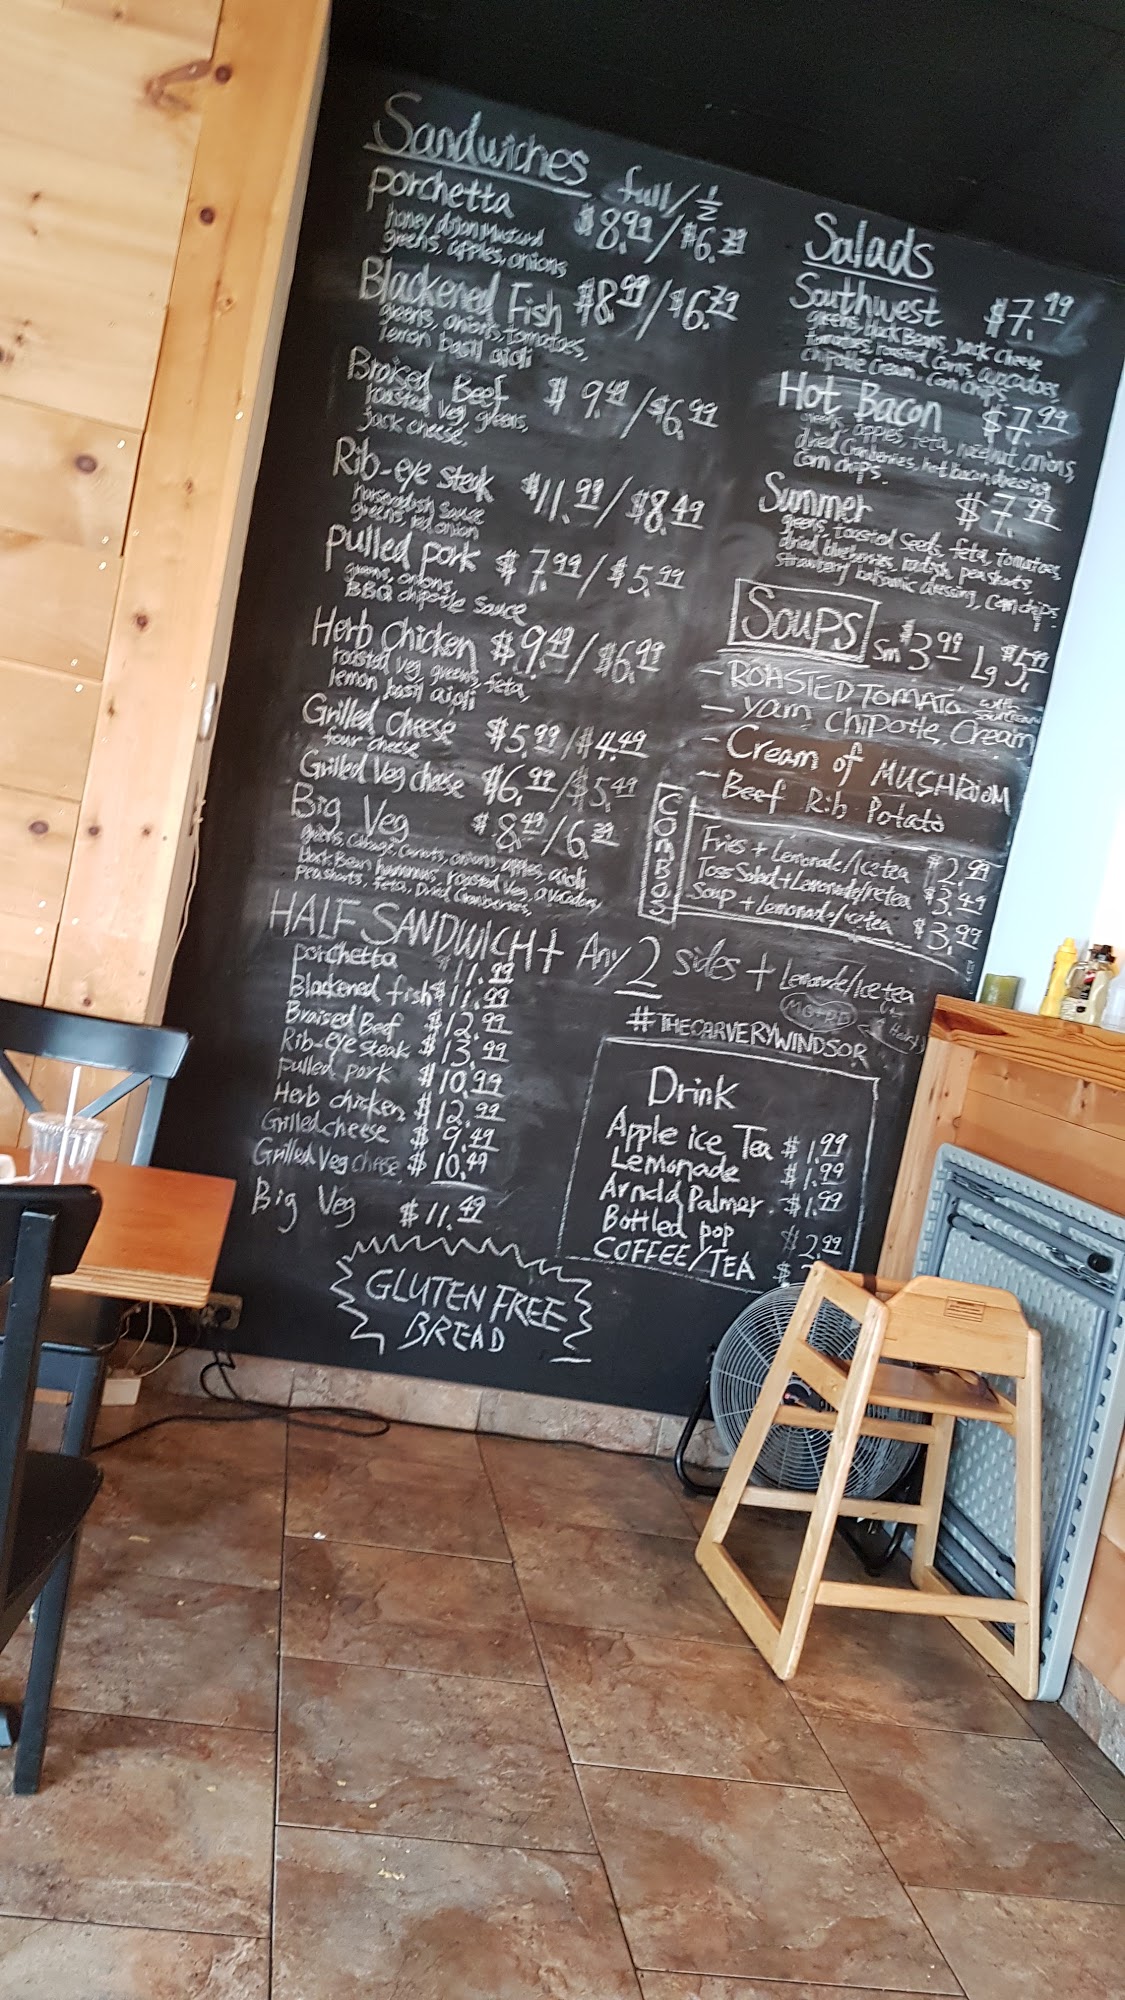 Sandwiches full/½
Porchetta $8.99/$6.79
honey dijon Mustard
greens, apples, onions
Blackened Fish $8.99/$6.79
greens, onions, tomatoes,
lemon basil aioli
Braised Beef $9.49/$6.99
roasted veg, greens,
jack cheese.
Rib-eye steak $11.99/$8.49
horseradish sauce
greens, red onion
Pulled pork $7.99/$5.99
greens, onions,
BBQ chipotle sauce
Herb Chicken $9.49/$6.99
roasted veg, greens, feta,
lemon basil aioli
Grilled Cheese $5.99/$4.49
four cheese
Grilled Veg cheese $6.99/$5.49
Big Veg $8.49/6.79
greens, Cabbage, Carrots, onions, apples, aioli
black Bean hummus, roasted veg, avocados,
peashoots, feta, Dried Cranberries,
HALF SANDWICH + Any 2 sides + Lemonade/Icetea
Porchetta $11.99
Blackened fish $11.99
Braised Beef $12.99
Rib-eye steak $13.99
Pulled pork $10.99
Herb chicken $12.99
Grilled cheese $9.49
Grilled Veg cheese $10.49
Big Veg $11.49
GLUTEN FREE
BREAD
Salads
Southwest $7.99
greens, black Beans, Jack Cheese
tomatoes, roasted Corns, avocadoes,
chipotle Cream, Corn chips
Hot Bacon $7.99
greens, apples, feta, hazelnut, onions,
dried Cranberries, hot bacon dressing
Corn chops.
Summer $7.99
greens, toasted Seeds, feta, tomatoes,
dried blueberries, radish, peashoots,
strawberry balsamic dressing, Corn chips
Soups Sm $3.99 Lg $5.99
- ROASTED TOMATO with sourcream
- Yam Chipotle Cream
- Cream of MUSHROOM
- Beef Rib Potato
ComBos
Fries + Lemonade/Icetea $2.99
Toss Salad + Lemonade/Icetea $3.49
Soup + Lemonade/icetea $3.99
#THECARVERYWINDSOR
Drink
Apple ice Tea $1.99
Lemonade $1.99
Arnold Palmer $1.99
Bottled pop $2.99
COFFEE/TEA $